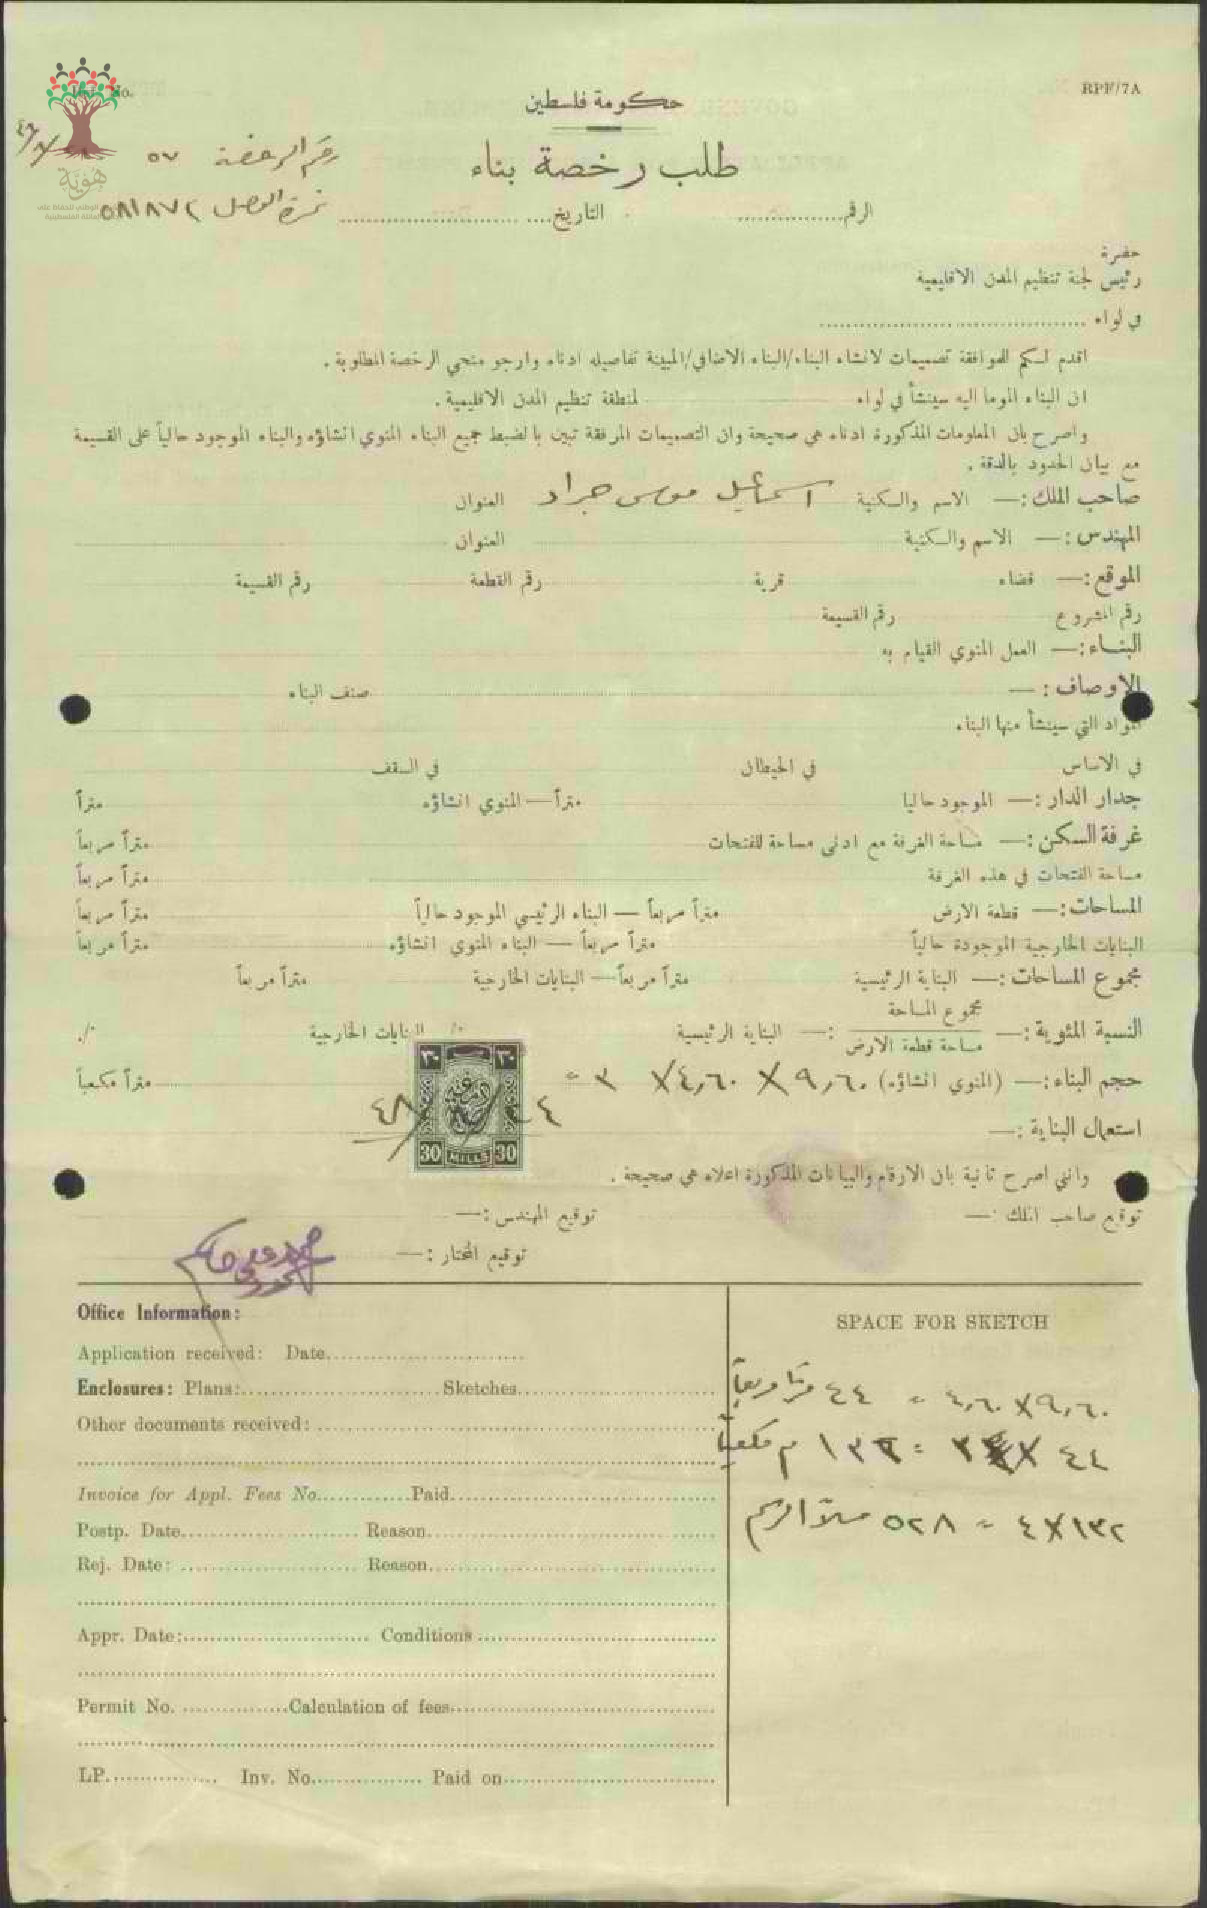 RPF/7A
حكومة فلسطين
طلب رخصة بناء
رقم الرخصة ٥٧
نمرة الوصل ٥٨١٨٧٢
الرقم.................. التاريخ......................
حضرة
رئيس لجنة تنظيم المدن الاقليمية
في لواء
اقدم لكم للموافقة تصميمات لانشاء البناء/البناء الاضافي/المبينة تفاصيله ادناه وارجو منحي الرخصة المطلوبة .
ان البناء الموما اليه سينشأ في لواء لمنطقة تنظيم المدن الاقليمية .
واصرح بان المعلومات المذكورة ادناه هي صحيحة وان التصميمات المرفقة تبين بالضبط جميع البناء المنوي انشاؤه والبناء الموجود حالياً على القسيمة
مع بيان الحدود بالدقة .
صاحب الملك :— الاسم والكنية اسماعيل موسى جراد العنوان
المهندس :— الاسم والكنية العنوان
الموقع :— قضاء قرية رقم القطعة رقم القسيمة
رقم المشروع رقم القسيمة
البناء :— العمل المنوي القيام به
الاوصاف :— صنف البناء
المواد التي سينشأ منها البناء
في الاساس في الحيطان في السقف
جدار الدار :— الموجود حاليا متراً — المنوي انشاؤه متراً
غرفة السكن :— مساحة الغرفة مع ادنى مساحة للفتحات متراً مربعاً
مساحة الفتحات في هذه الغرفة متراً مربعاً
المساحات :— قطعة الارض متراً مربعاً — البناء الرئيسي الموجود حالياً متراً مربعاً
البنايات الخارجية الموجودة حالياً متراً مربعاً — البناء المنوي انشاؤه متراً مربعاً
مجموع المساحات :— البناية الرئيسية متراً مربعاً — البنايات الخارجية متراً مربعاً
النسبة المئوية :— مجموع المساحة / مساحة قطعة الارض :— البناية الرئيسية ٪ البنايات الخارجية ٪
حجم البناء :— (المنوي انشاؤه) ٩,٦٠ X ٤,٦٠ X ٣ = متراً مكعباً
٢٤/ /٤٨
٣٠ ٣٠
30 MILLS 30
استعمال البناية :—
وانني اصرح ثانية بان الارقام والبيانات المذكورة اعلاه هي صحيحة .
توقيع صاحب الملك :— توقيع المهندس :—
توقيع المختار :—
Office Information:
Application received: Date
Enclosures: Plans: Sketches
Other documents received:
Invoice for Appl. Fees No. Paid
Postp. Date Reason
Rej. Date: Reason
Appr. Date: Conditions
Permit No. Calculation of fees
LP. Inv. No. Paid on
SPACE FOR SKETCH
٩,٦٠ X ٤,٦٠ = ٤٤ متراً مربعاً
٤٤ X ٣ = ١٣٢ م مكعباً
١٣٢ X ٤ = ٥٢٨ ملاً الرسم
هوية